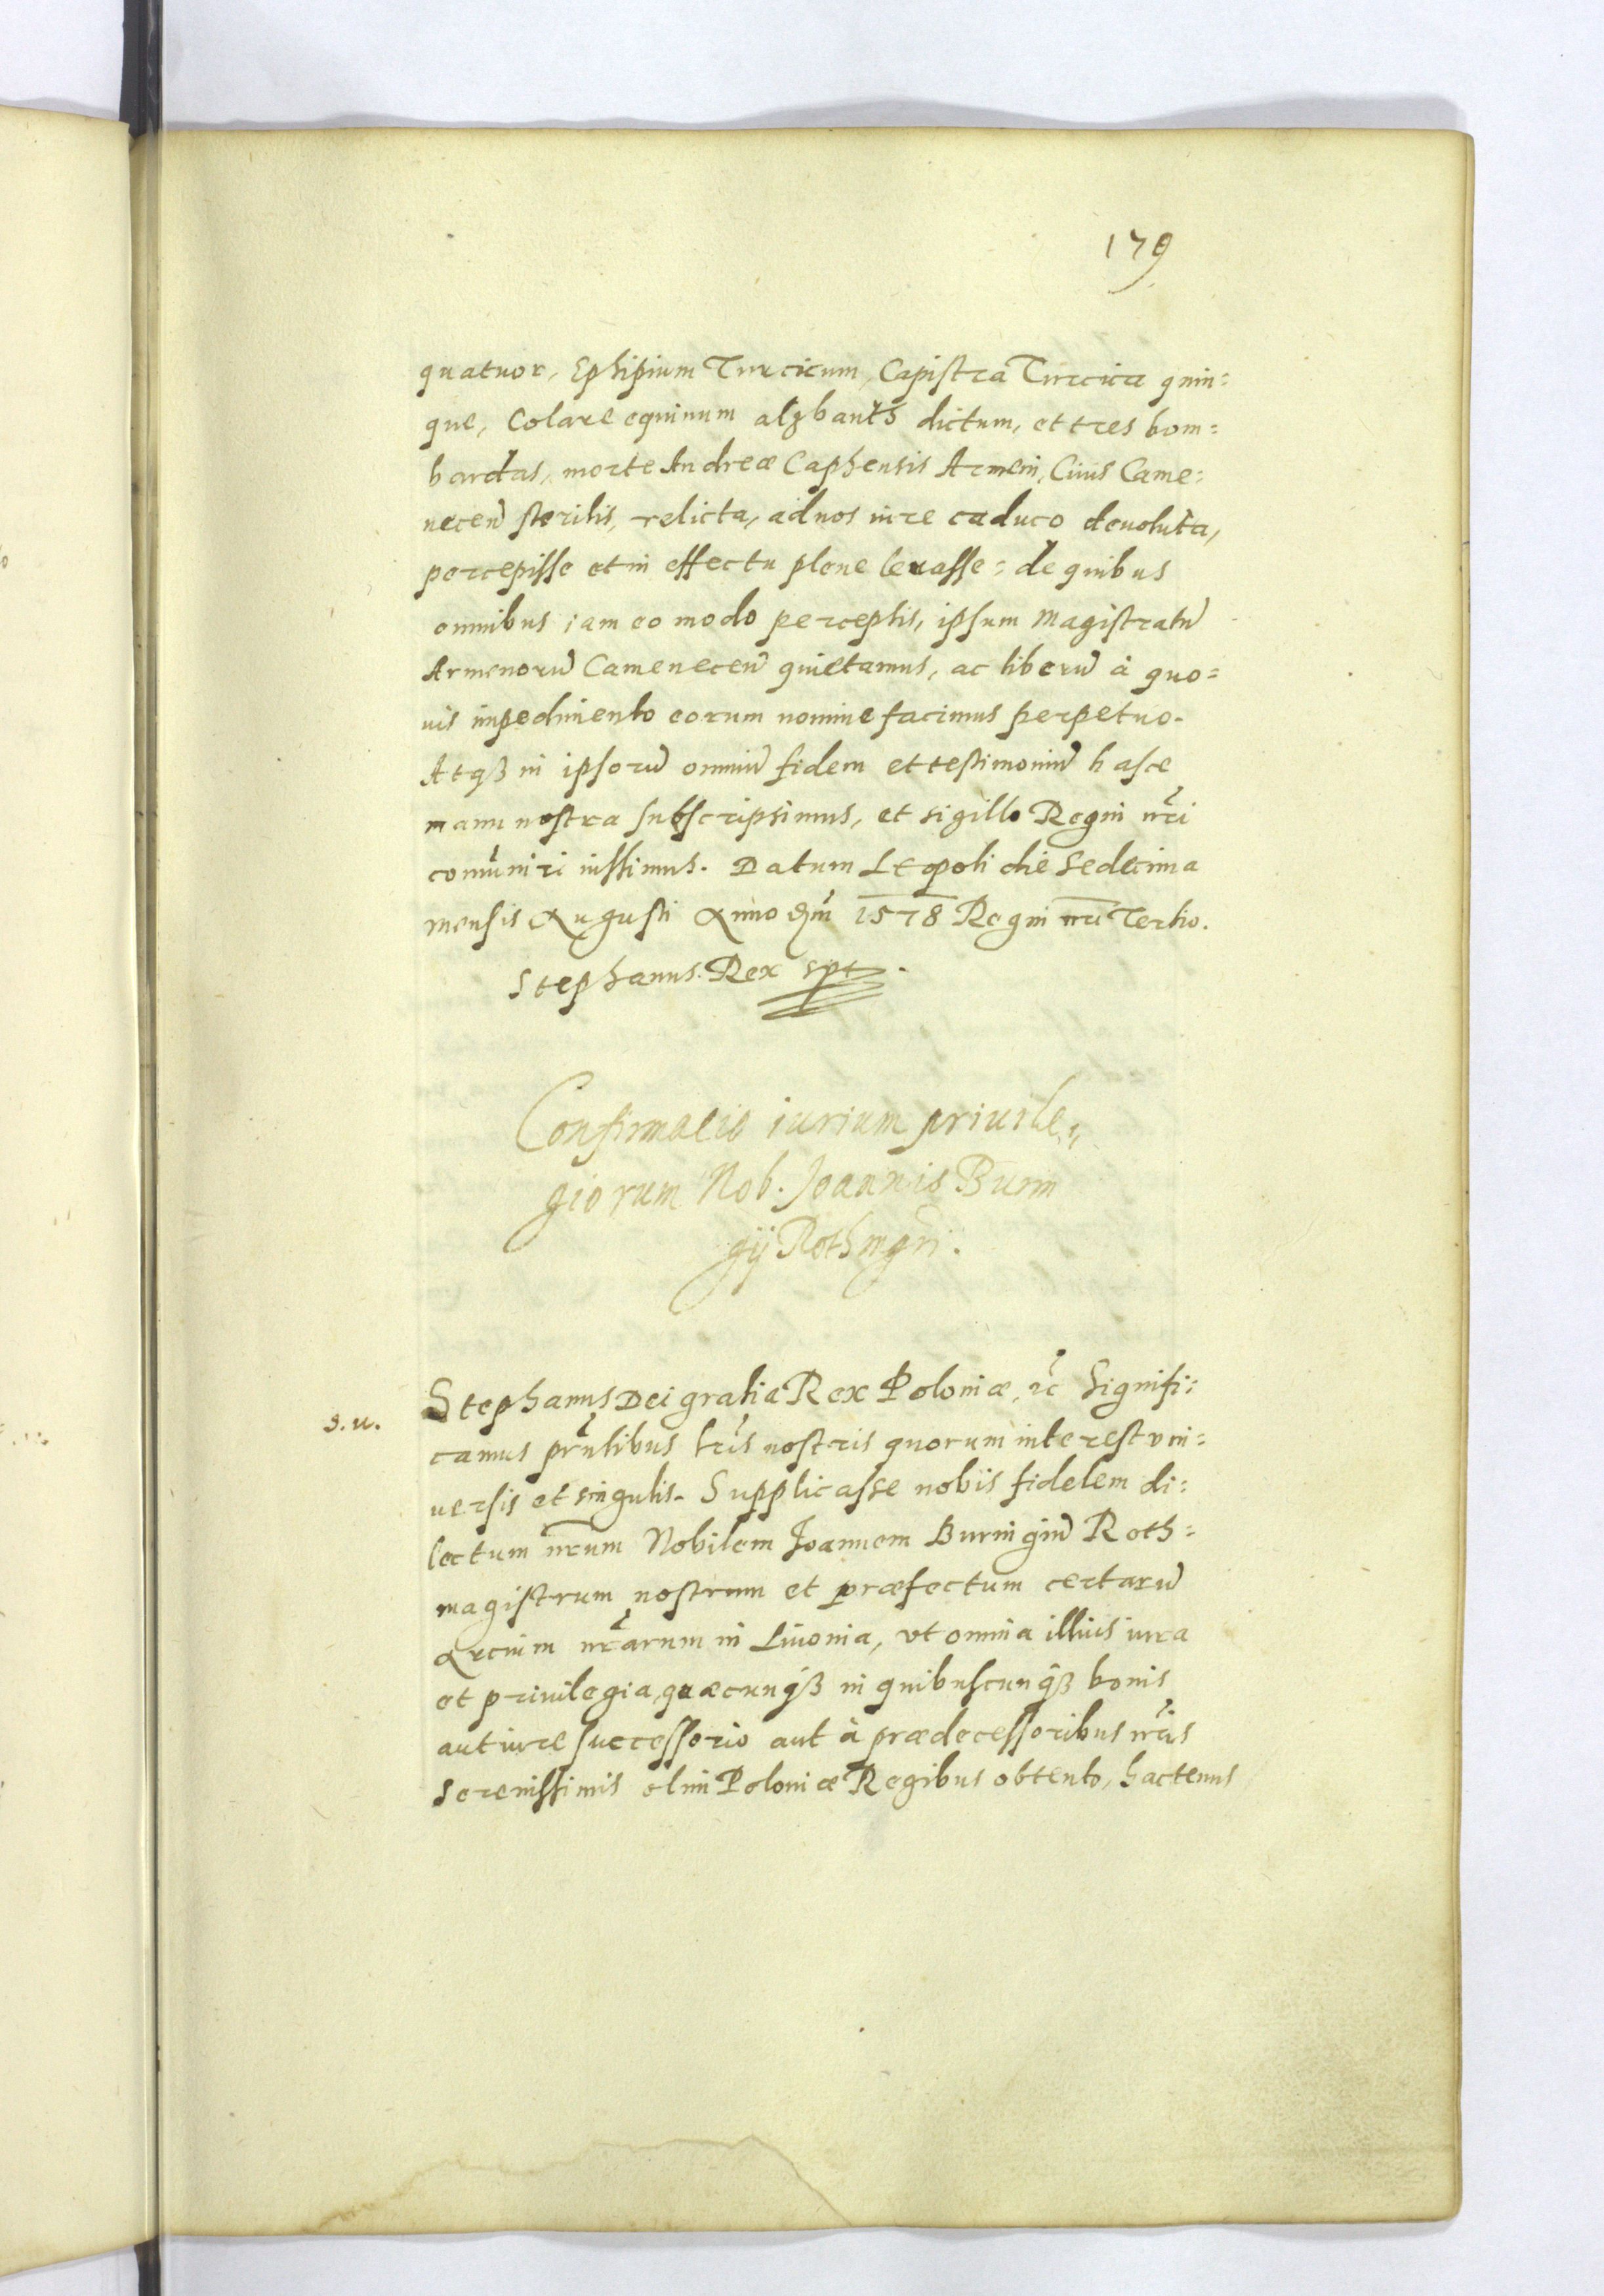 179
quatuor, Ephipium Turcicum, Capistra Turcica quin=
que, Colare equinum alzbants dictum, et tres bom=
bardas, morte Andreæ Caphensis Armeni, Ciuis Came=
necen̄ sterilis, relicta, ad nos iure caduco deuoluta,
percepisse et in effectu plene leuasse: de quibus
omnibus iam eo modo perceptis, ipsum Magistratū
Armenorū Camenecen̄ quietamus, ac liberū à quo=
uis impedimento eorum nomine facimus perpetuo.
Atqꝫ in ipsorū omniū fidem et testimoniū hasce
manu nostra subscripsimus, et sigillo Regni nr̄i
com̄uniri iussimus. Datum Leopoli die Sedecima
mensis Augusti Anno Dn̄i 1578 Regni nr̄i Tertio.
Stephanus Rex spt.
Confirmatio iurium priuile„
giorum Nob. Joannis Burin
gij Rothmgri.
s. u.
Stephanus Dei gratia Rex Poloniæ, ꝛc̄ Signifi=
camus pn̄tibus lr̄is nostris quorum interest vni=
uersis et singulis. Supplicasse nobis fidelem di=
lectum nr̄um Nobilem Joannem Buringiū Roth=
magistrum nostrum et præfectum certarū
Arcium nr̄arum in Liuonia, vt omnia illius iura
et priuilegia, quæcunqꝫ in quibuscunqꝫ bonis
aut iure successorio aut à prædecessoribus nr̄is
Serenissimis olim Poloniæ Regibus obtento, hactenus